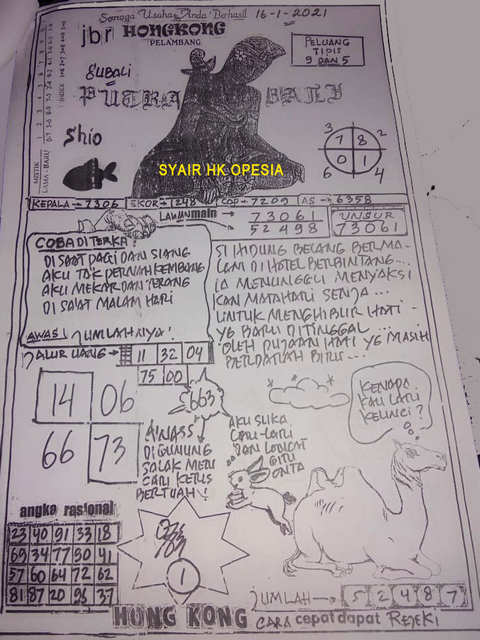 Semoga Usaha Anda Berhasil 16-1-2021
jbr HONGKONG
PELAMBANG
PELUANG
TIPIS
9 DAN 5
Subali
PUTRA BALI
Shio
SYAIR HK OPESIA
3 2
7 8
0 1
6 4
KEPALA → 7306 EKOR → 1248 COP → 7209 AS → 6358
LAWAN main → 73061
52498
UNSUR
73061
COBA DITERKA!
DI SAAT PAGI DAN SIANG
AKU TAK PERNAH KEMBANG
AKU MEKAR DAN TERANG
DI SAAT MALAM HARI
AWAS! JUMLAHNYA!
SI HIDUNG BECANG BERMA-
LAM DI HOTEL BERBINTANG...
IA MENUNGGU MENYAKSI
KAN MATAHARI SENJA...
UNTUK MENGHIBUR HATI-
YG BARU DI TINGGAL...
OLEH PUJAAN HATI YG MASIH
BERDARAH BIRU...
JALUR UANG → 11 32 04
75 00
14 06
66 73
663
A'NASS
DI GUNUNG
SALAK MEN
CARI KERIS
BERTUAH!
AKU SUKA
LARI-LARI
DAN LONCAT
GITU
ONTA
KENAPA
KAU LARI
KELINCI?
angka rasional
23 40 91 33 18
69 34 77 50 41
57 60 64 72 62
81 87 20 96 37
1
JUMLAH → 5 2 4 8 7
HONG KONG
CARA cepat dapat REJEKI